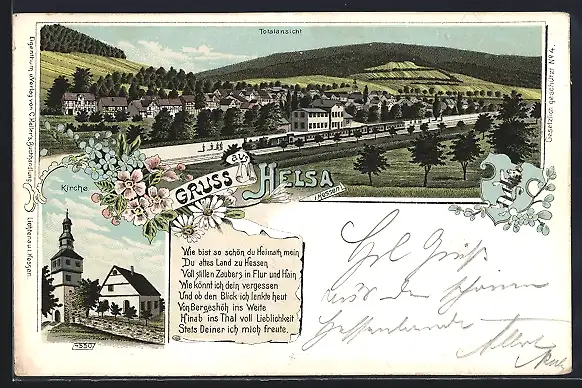 Totalansicht
Gesetzlich geschützt No 4.
Eigenthum u Verlag von C. Walters, Buchhandlung Lichtenau i Hessen.
Kirche
GRUSS aus
HELSA
(Hessen)
Wie bist so schön du Heimath mein
Du altes Land zu Hessen
Voll stillen Zaubers in Flur und Hain
Wie könnt ich dein vergessen
Und ob den Blick ich lenkte heut
Von Bergeshöh ins Weite
Hinab ins Thal voll Lieblichkeit
Stets Deiner ich mich freute.
Gruß
aus dem schönen
Hessenlande